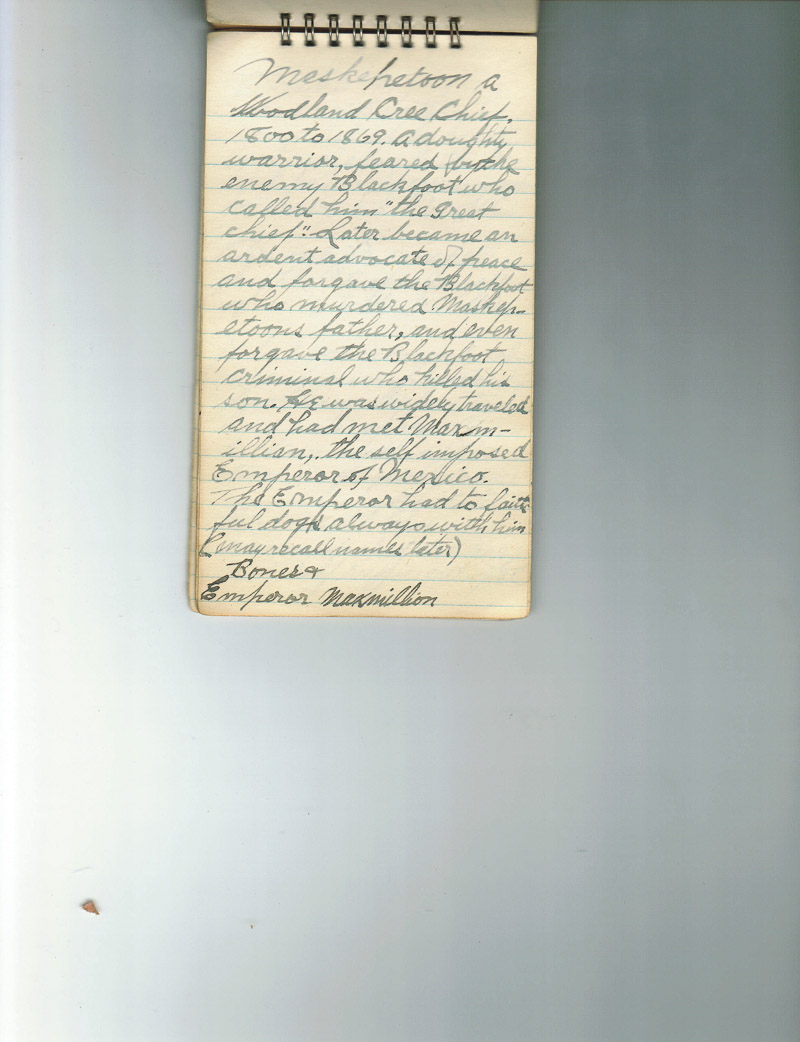 Maskepetoon a
Woodland Cree Chief.
1800 to 1869. A doughty
warrior, feared by the
enemy Blackfoot who
called him "the Great
chief". Later became an
ardent advocate of peace
and forgave the Blackfoot
who murdered Maskep-
etoons father, and even
forgave the Blackfoot
criminal who killed his
son. He was widely traveled
and had met Maxm-
illian, the self imposed
Emperor of Mexico.
The Emperor had to faith
ful dogs always with him
(may recall names later)
Bones +
Emperor Maxmillion